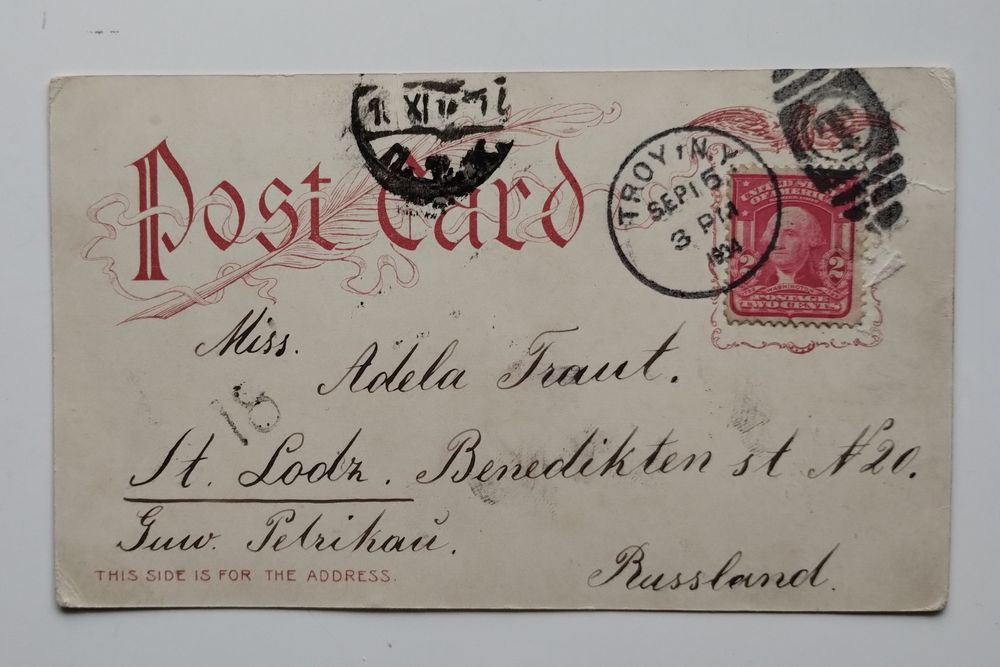 Post Card
TROY, N.Y.
SEP 15
3 PM
1904
T
UNITED STATES
OF AMERICA
2 2
WASHINGTON
POSTAGE
TWO CENTS
Miss.
Adela Traut.
18
St. Lodz. Benedikten st N 20.
Guw. Petrikau.
THIS SIDE IS FOR THE ADDRESS.
Russland.